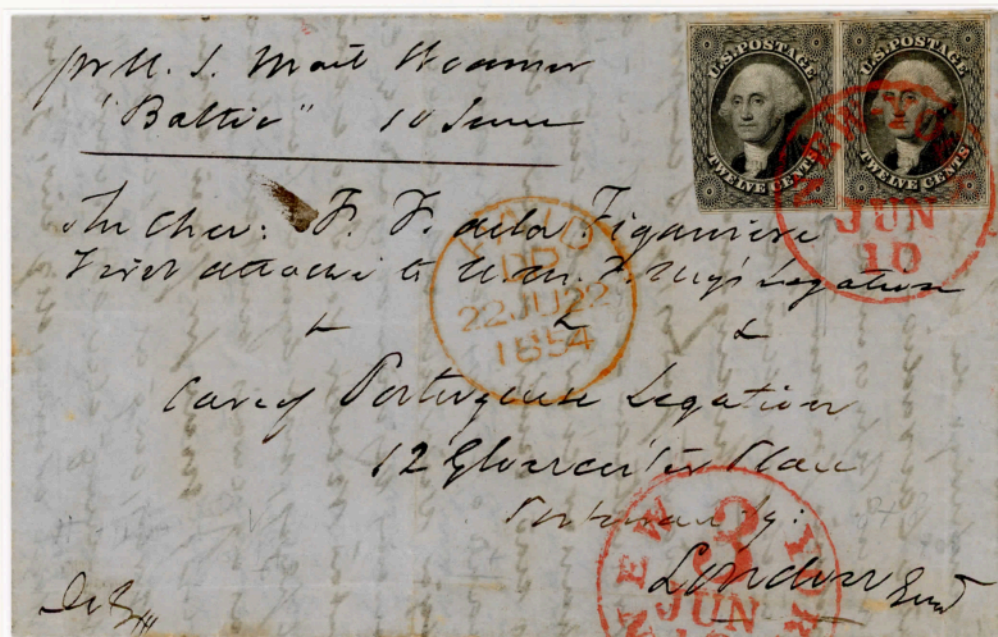 pr U. S. Mail Steamer
"Baltic" 10 June
U.S. POSTAGE
TWELVE CENTS
U.S. POSTAGE
TWELVE CENTS
NEW-YORK
JUN
10
The Chev: F. F. de la Figaniere
First attaché to H. M. F. Maj's Legation
& & &
PAID
22 JU 22
1854
Care of Portuguese Legation
12 Gloucester Place
Portman Sq:
London
NEW YORK
3
JUN